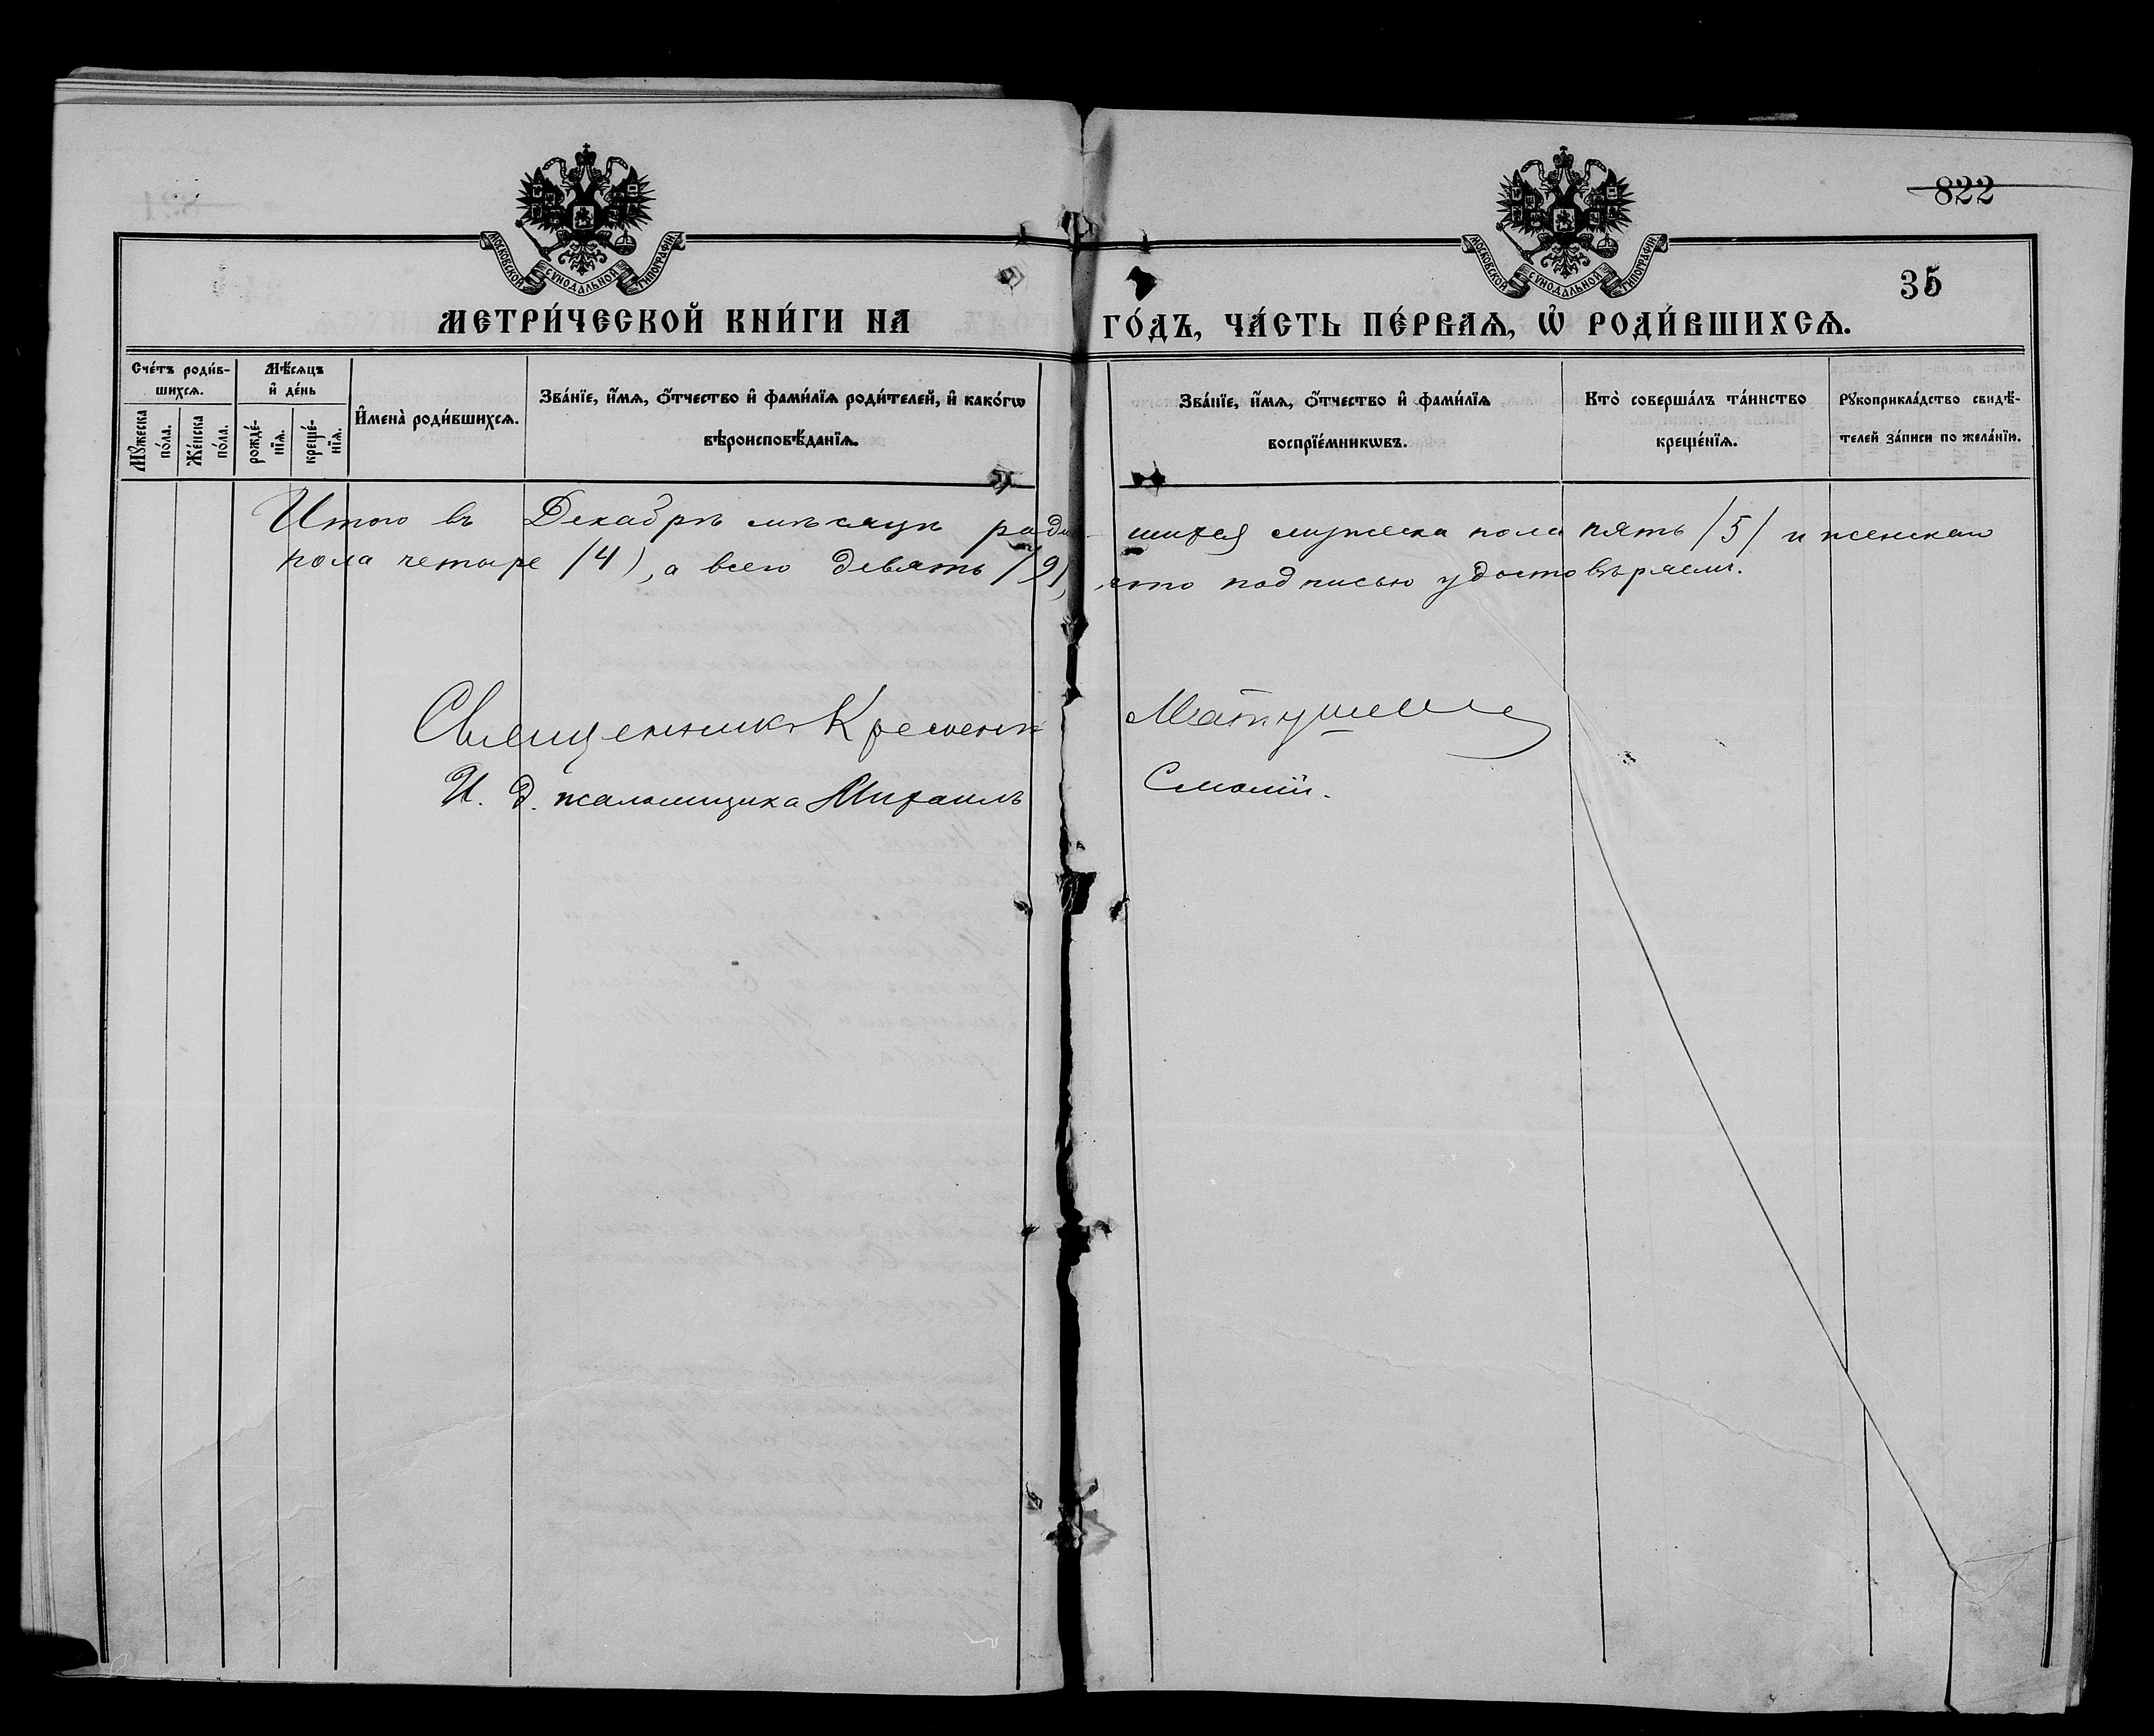 822
35
МОСКОВСКОЙ СѴНОДАЛЬНОЙ ТИПОГРАФІИ
МОСКОВСКОЙ СѴНОДАЛЬНОЙ ТИПОГРАФІИ
МЕТРИ́ЧЕСКОЙ КНИ́ГИ НА ГО́ДЪ, ЧА́СТЬ ПЕ́РВАѦ, Ѡ҆ РОДИ́ВШИХСѦ.
Сче́тъ роди́в-
шихсѧ.
Мꙋ́жеска по́ла.
Же́нска по́ла.
Мѣ́сѧцъ
и҆ де́нь
рожде́-
нїѧ.
креще́-
нїѧ.
И҆мена̀ роди́вшихсѧ.
Зва́нїе, и҆́мѧ, ѻ҆́тчество и҆ фами́лїѧ роди́телей, и҆ како́гѡ
вѣроисповѣ́данїѧ.
Зва́нїе, и҆́мѧ, ѻ҆́тчество и҆ фами́лїѧ
воспрїе́мникѡвъ.
Кто̀ соверша́лъ та́инство
креще́нїѧ.
Рꙋкоприкла́дство свидѣ́-
телей за́писи по жела́нїи.
Итого въ Декабрѣ мѣсяцѣ роди- шихся мужеска пола пять /5/ и женскаго
пола четыре /4), а всего девять /9/, что подписью удостовѣряемъ.
Священникъ
И. д. псаломщика Михаилъ Смолій.